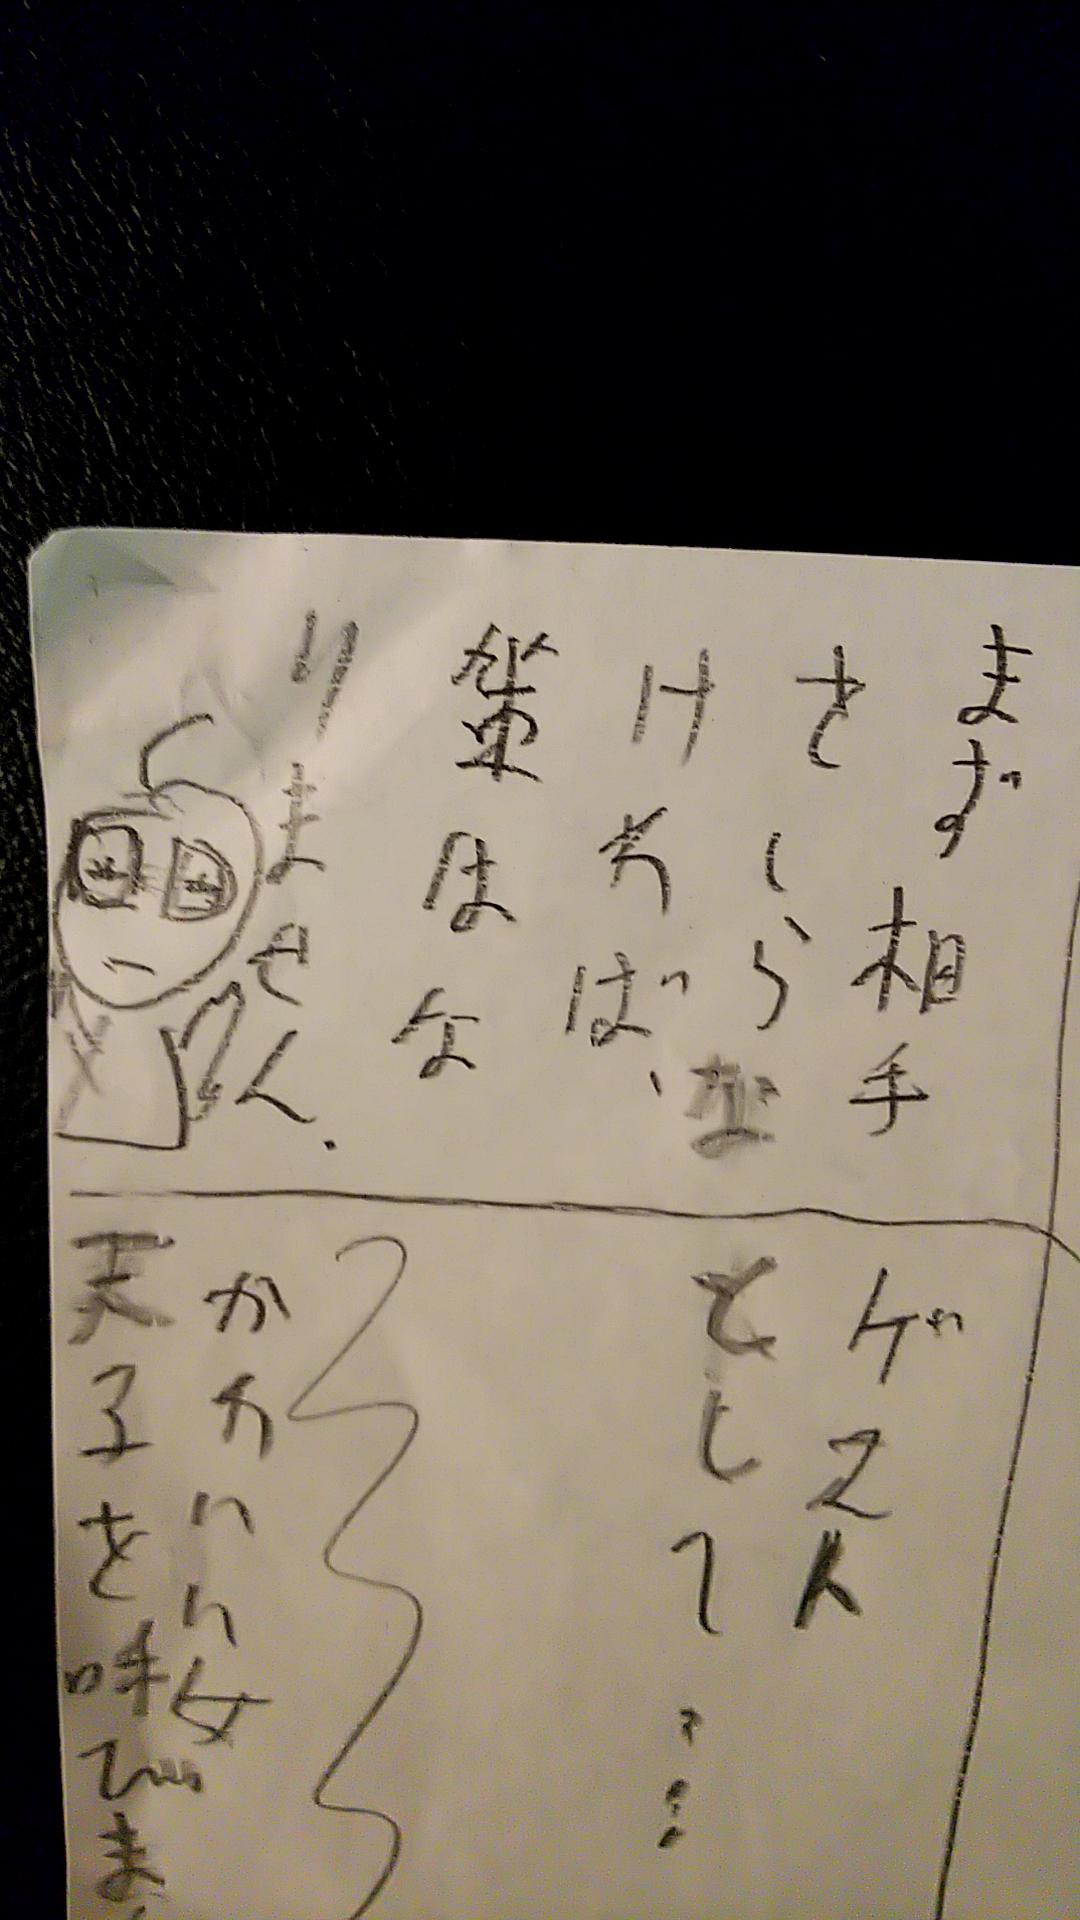 まず相手
をしらな
ければ、
策はな
りません.
ゲスト
として…
かわいい女
天子を呼びま